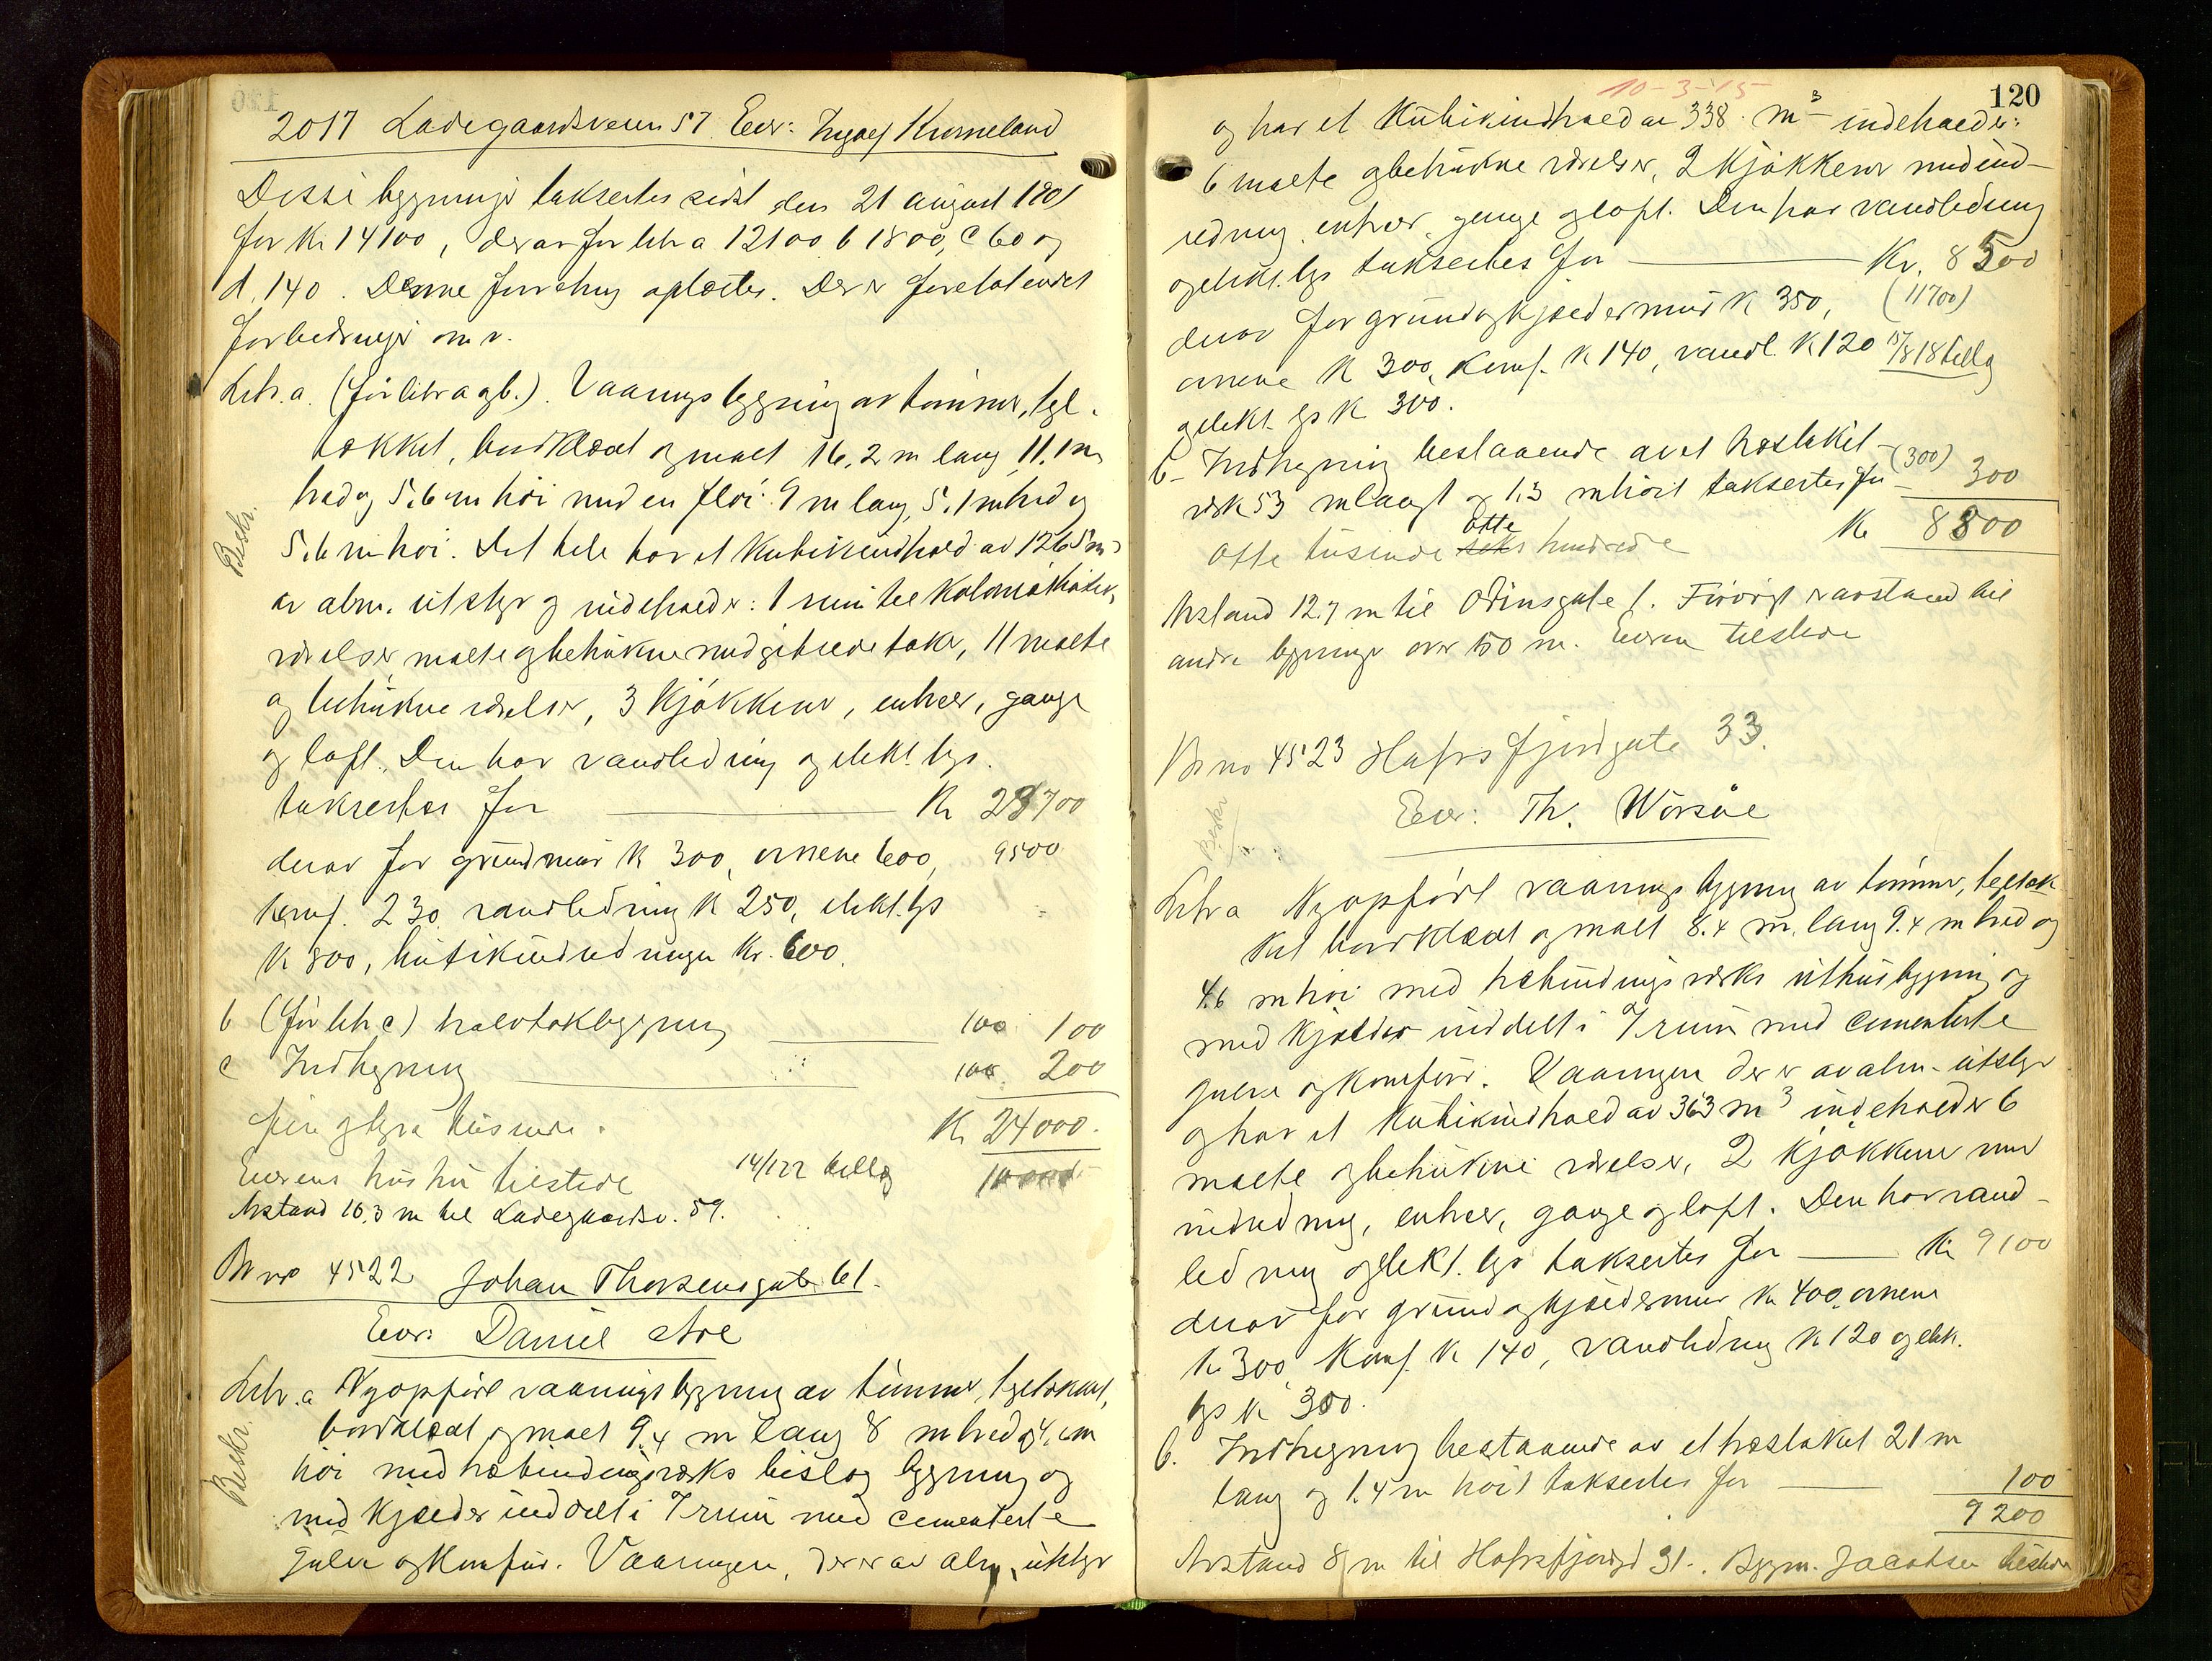 2017 Ladegaardsveien 57 Eier: Ingolf Kverneland
Disse bygninger taksertes sidst den 21 august 1901
for Kr 14100, derav for litr a 12100 b 1800, c 60 og
d. 140. Denne forretning opløstes. Der er foretat endel
forbedringer m.v.
Litr. a. (før litr a og b.). Vaaningsbygning av tømmer, tegl-
tækket, bordklædt og malt 16.2 m lang 11.1 m
bred og 5.6 m høi med en fløi: 9 m lang, 5.1 m bred og
5.6 m høi. Det hele har et kubikindhold av 1265 m3
er alm. utstyr og indeholder: 1 rum til kolonialbutik,
værelser, malte og betrukne med gibsede taker, 11 malte
og betrukne værelser, 3 kjøkkener, entreer, gange
og loft. Den har vandledning og elekt. lys.
taksertes for Kr 23700
derav for grundmur K 300, ovnene 600, 9500
komf. 230, vandledning K 250, elekt. lys
K 800, butikindredningen Kr. 600.
b (før litr c) halvtakbygning 100 100
c Indhegning 100 200
fire og tyve tusende. Kr 24000.
Eierens hustru tilstede 14/122 tillæg 10000
Avstand 16.3 m til Ladegaardsv. 59.
Br no 4522 Johan Thorsensgate 61.
Eier: Daniel Aroe
Litr. a Nyopført vaaningsbygning av tømmer, tegltækket,
bordklædt og malt 9.4 m lang 8 m bred og 4.6 m
høi med halvbindingsverks bislag bygning og
med kjælder inddelt i 7 rum med cementerte
gulve og komfur. Vaaningen, der er av alm. utstyr
Beskr.
Beskr.
10-3-15
120
og har et kubikindhold av 338 m3 indeholder:
6 malte og betrukne værelser, 2 kjøkkener med ind-
redning, entreer, gange og loft. Den har vandledning
og elekt. lys taksertes for Kr. 8500
derav for grund og kjældermur K 350, (11700)
ovnene K 300, komf. K 140, vandl. K 120 15/8 18 tillæg
og elekt. lys K 300.
b- Indhegning bestaaende av et træstakit- (300)
verk 53 m langt og 1.3 m høit taksertes for 300
Otte tusende seks otte hundrede Kr 8800
Avstand 12.7 m til Odinsgate 1. Forøvrigt er avstand til
andre bygninger over 50 m. Eieren tilstede
Br no 4523 Hafrsfjordgate 33.
Eier: Th. Worsøe
Beskr
Litr a Nyopført vaaningsbygning av tømmer, tegltæk
ket bordklædt og malt 8.4 m. lang 9.4 m bred og
4.6 m høi med halvbindingsverks uthusbygning og
med kjælder inddelt i 7 rum med cementerte
gulve og komfur. Vaaningen der er av alm. utstyr
og har et kubikindhold av 363 m3 indeholder 6
malte og betrukne værelser, 2 kjøkkener med
indredning, entreer, gange og loft. Den har vand-
ledning og elekt. lys taksertes for Kr 9100
derav for grund og kjældermur Kr 400, ovnene
Kr 300, Komf. K 140, vandledning K 120 og elek.
lys K 300.
b. Indhegning bestaaende av et træstakit 21 m
lang og 1.4 m høit taksertes for 100
9200
Avstand 8 m til Hafrsfjordgt 31. Bygm. Jacobsen tilstede